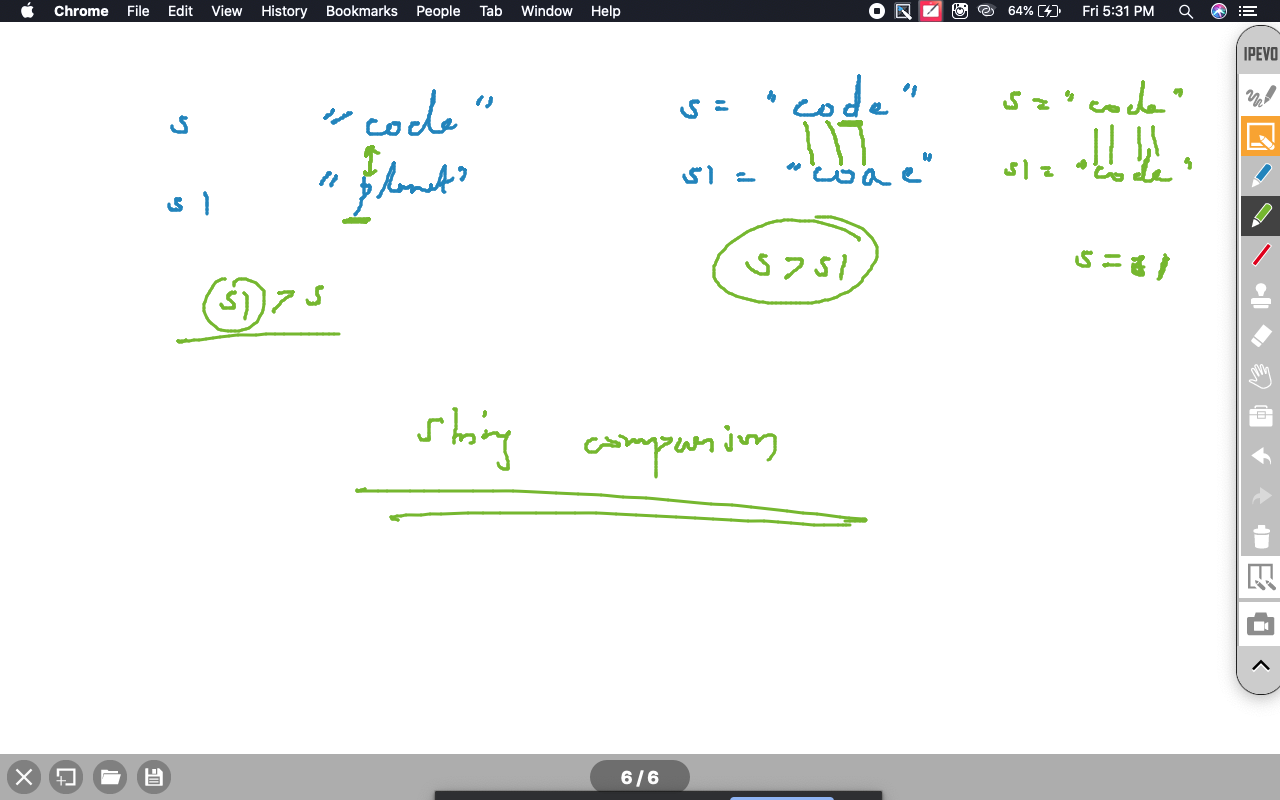 Chrome File Edit View History Bookmarks People Tab Window Help 64% Fri 5:31 PM
IPEVO
s "code"
s1 "planet"
s1 > s
s = "code"
s1 = "coae"
s > s1
s = "code"
s1 = "code"
s = s1
string comparision
6 / 6